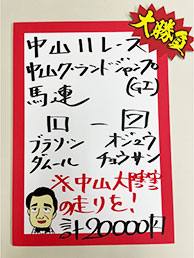 大勝負
中山11レース
中山グランドジャンプ
(GI)
馬連
1-2
ブラゾン オジュウ
ダムール チョウサン
※中山大障害
の走りを!
計20000円